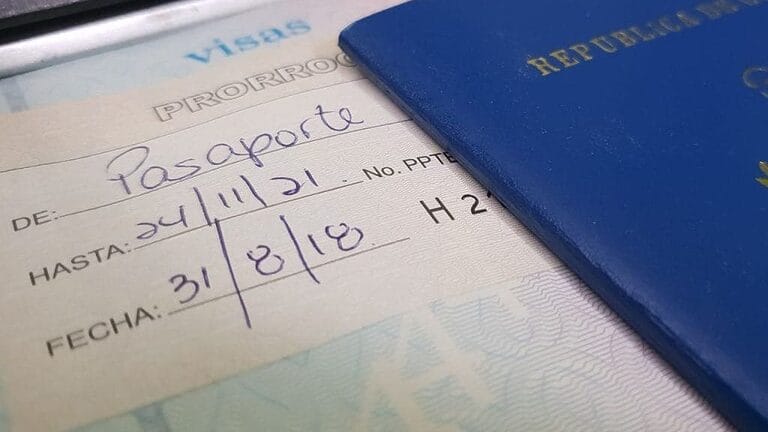 visas
PRORRO
DE: Pasaporte
HASTA: 24/11/21. No. PPTE
FECHA: 31/8/18 H 2
REPUBLICA DE